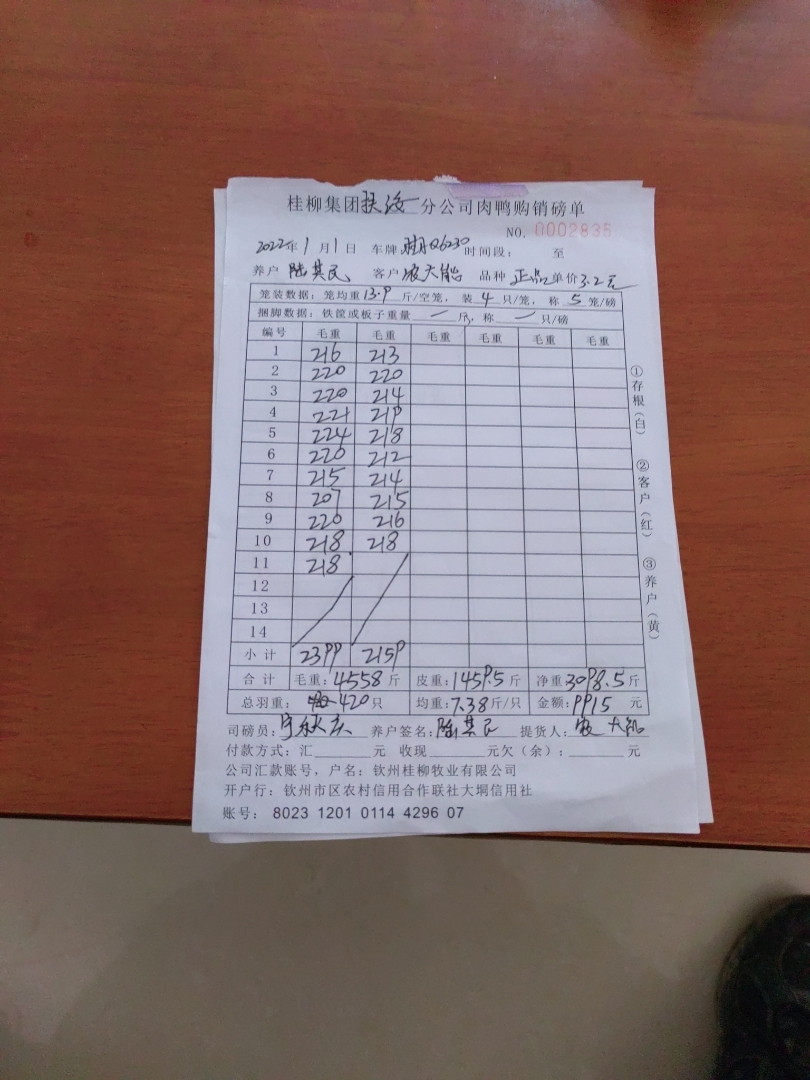 桂柳集团 分公司肉鸭购销磅单
NO. 0002835
2022年1月1日 车牌 Q6230 时间段： 至
养户 陆其民 客户 天能 品种 正品 单价3.2元
笼装数据：笼均重13.9斤/空笼，装4只/笼，称5笼/磅
捆脚数据：铁筐或板子重量 — 斤，称 — 只/磅
编号 毛重 毛重 毛重 毛重 毛重 毛重
1 216 213
2 220 220
3 220 214
4 221 219
5 224 218
6 220 212
7 215 214
8 207 215
9 220 216
10 218 218
11 218
12
13
14
小计 2399 2159
合计 毛重：4558斤 皮重：1459.5斤 净重3098.5斤
总羽重： 420只 均重：7.38斤/只 金额：9915元
司磅员： 养户签名：陆其民 提货人： 天能
付款方式：汇 元 收现 元欠（余）： 元
公司汇款账号，户名：钦州桂柳牧业有限公司
开户行：钦州市区农村信用合作联社大垌信用社
账号： 8023 1201 0114 4296 07
①存根（白）
②客户（红）
③养户（黄）